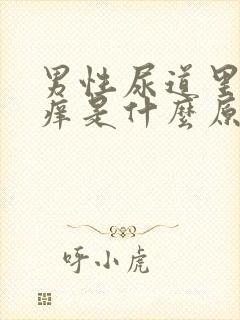 男性尿道里
痒是什麼原
呼小虎